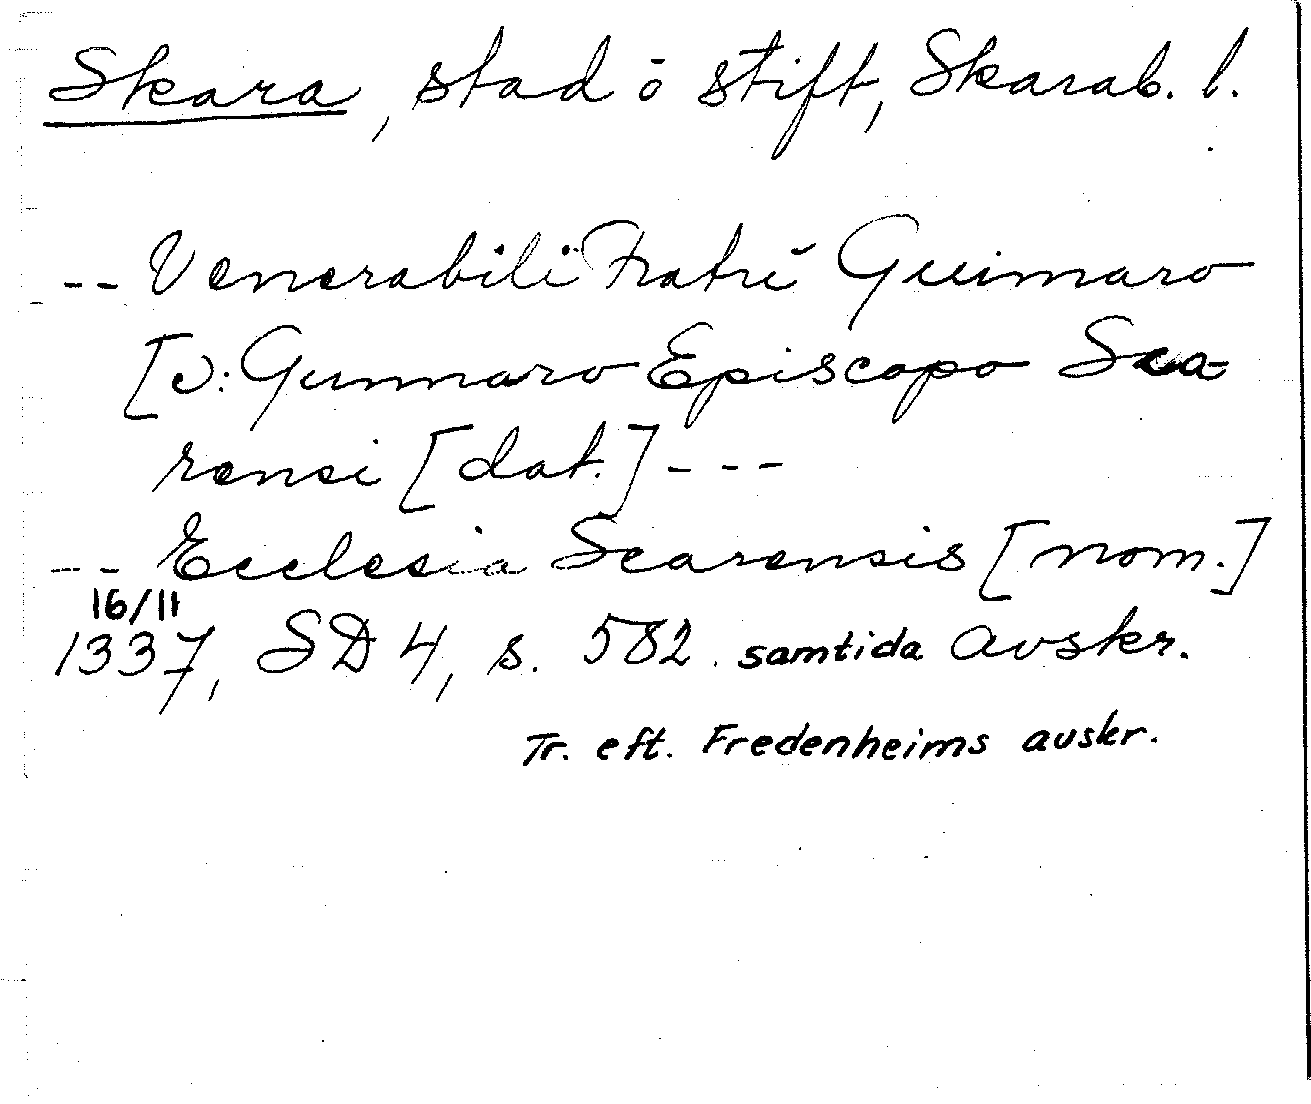 Skara, stad o stift, Skarab. l.
-- Venerabili Fratri Guimaro
[ɔ: Gunnaro Episcopo Sca-
rensi [dat.] ---
-- Ecclesia Scarensis [nom.]
16/11
1337, SD 4, s. 582. samtida avskr.
Tr. eft. Fredenheims avskr.